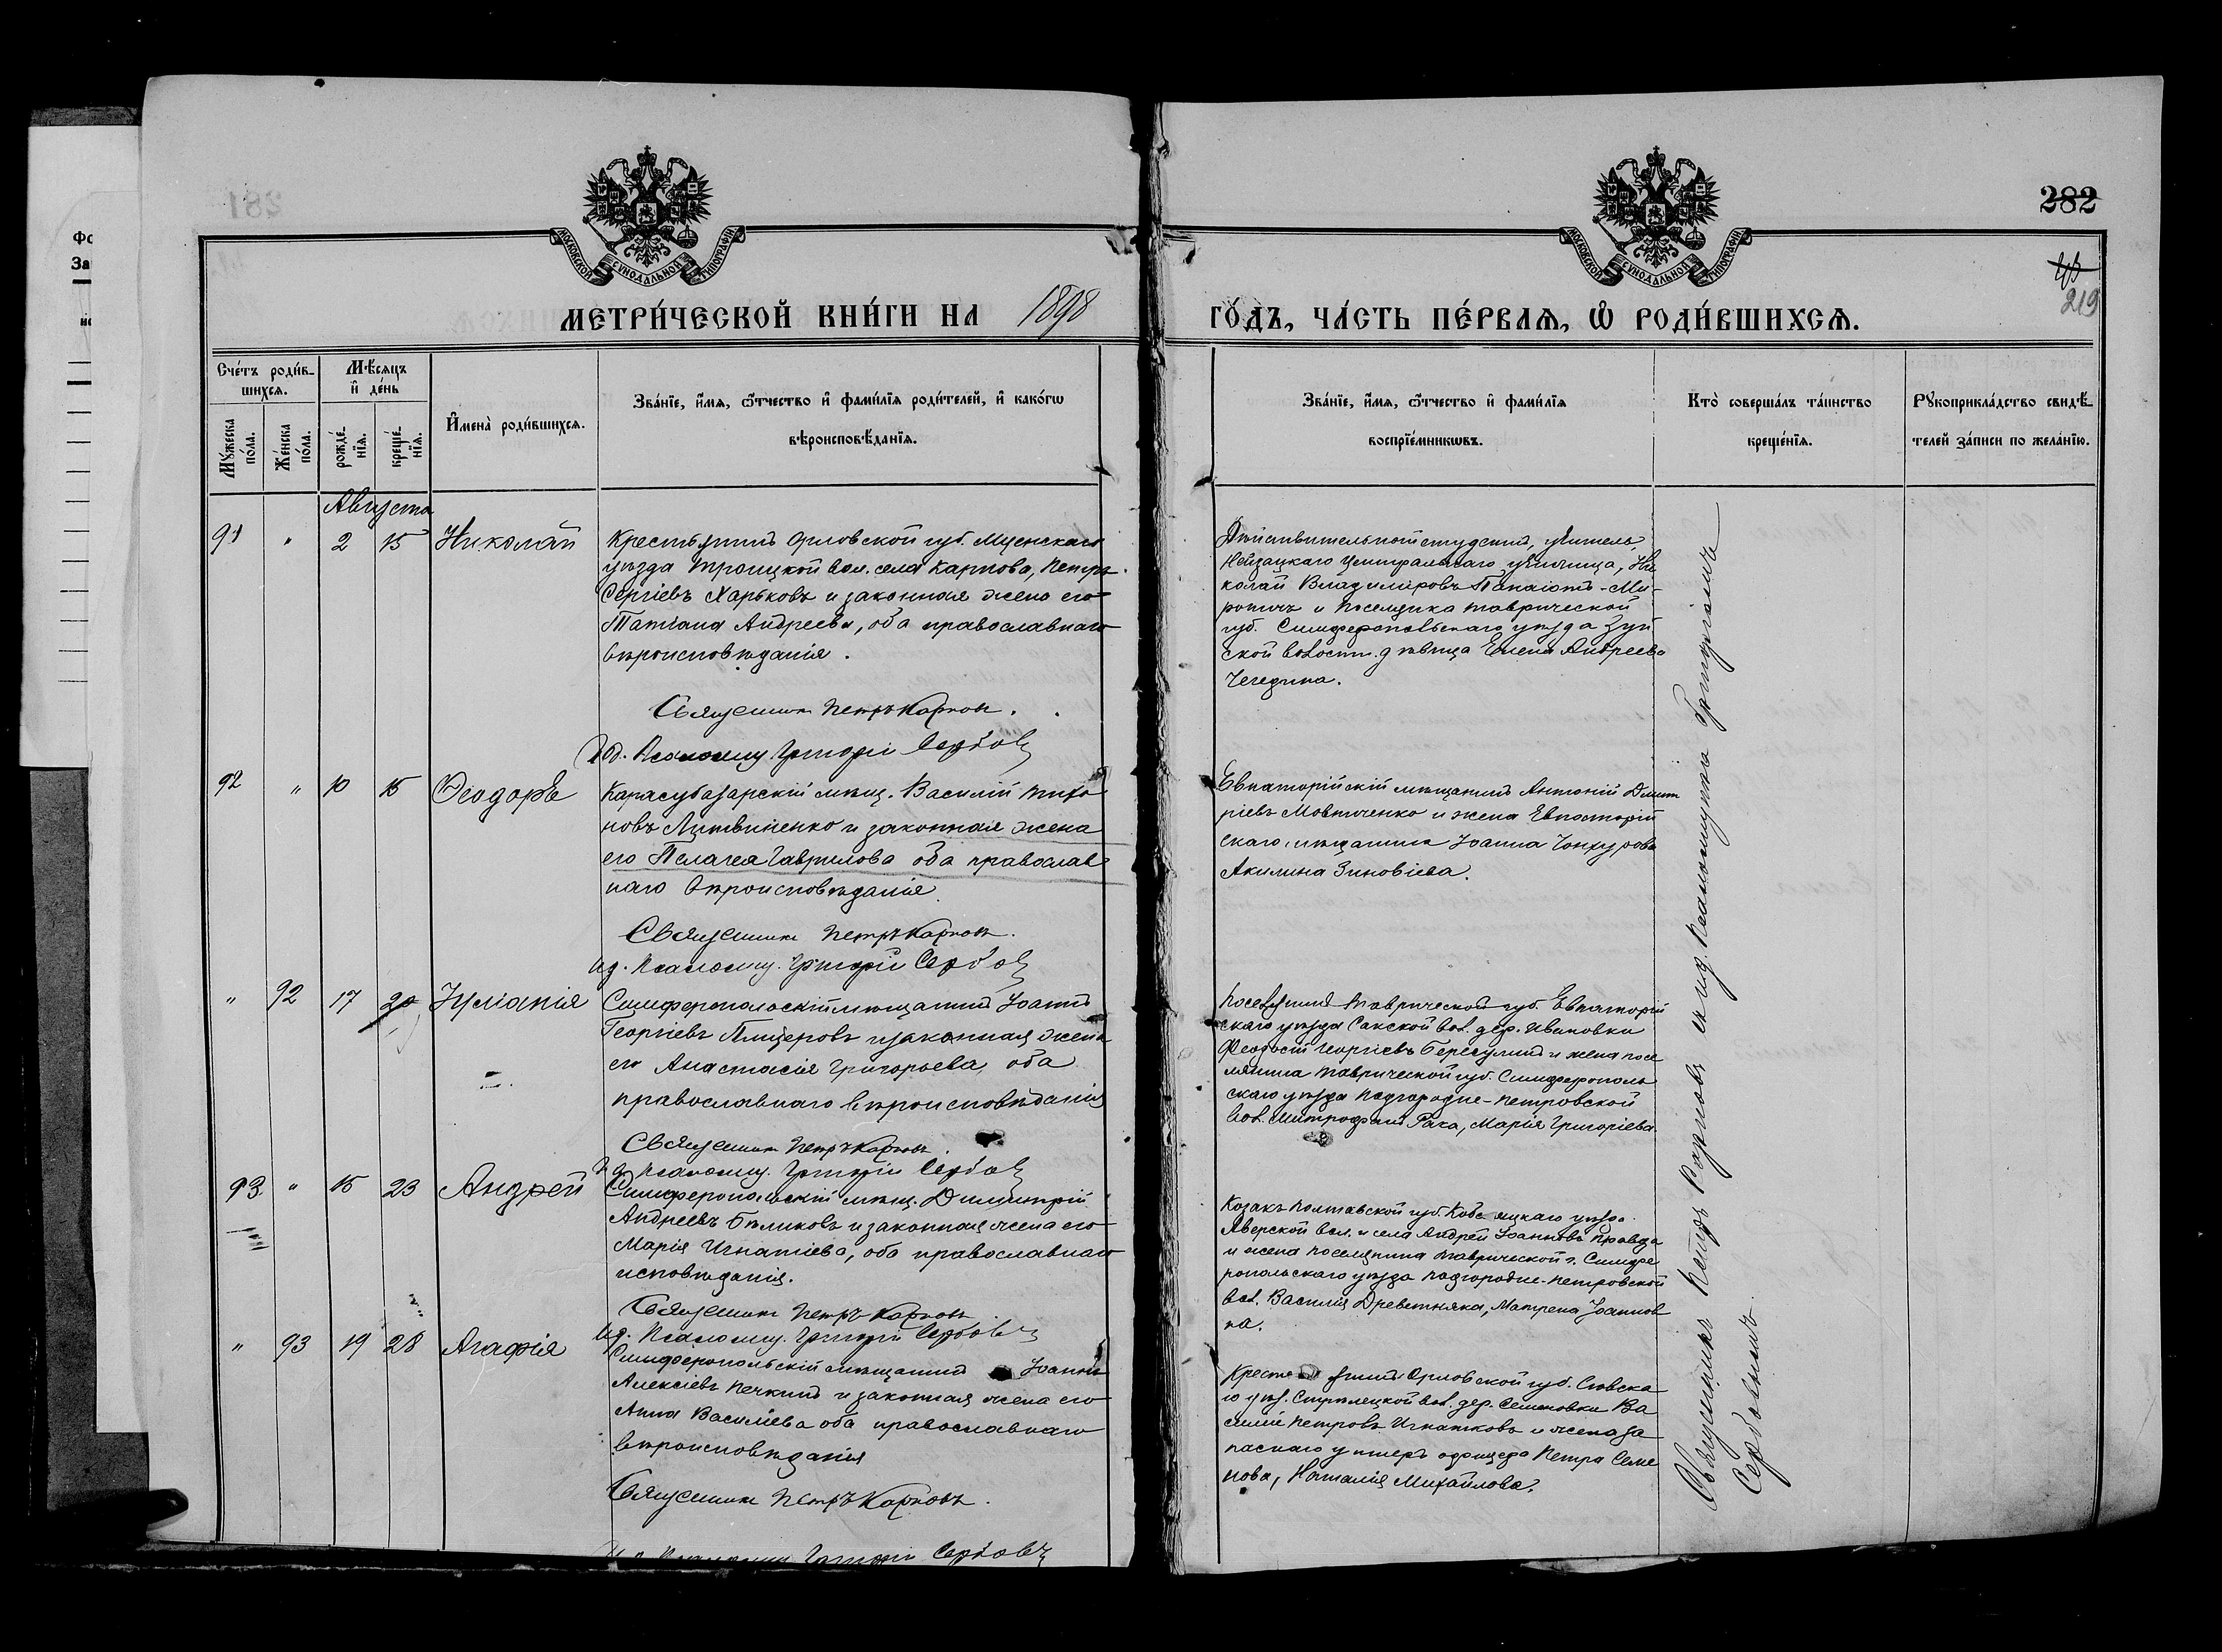 281
282
219
МОСКОВСКОЙ СѴНОДАЛЬНОЙ ТИПОГРАФІИ
МОСКОВСКОЙ СѴНОДАЛЬНОЙ ТИПОГРАФІИ
МЕТРИ́ЧЕСКОЙ КНИ́ГИ НА 1898
ГО́ДЪ, ЧА́СТЬ ПЕ́РВАЯ, Ѡ РОДИ́ВШИХСЯ.
Фо
За
Сче́тъ роди́в-
шихся.
Мѣ́сяцъ
и҆ де́нь
Мꙋ́жеска
по́ла.
Же́нска
по́ла.
рожде́-
нїя.
креще́-
нїя.
И҆мена̀ роди́вшихся.
Зва́нїе, и҆́мя, ѻ҆́тчество и҆ фами́лїя роди́телей, и҆ како́гѡ
вѣроисповѣ́данїя.
Зва́нїе, и҆́мя, ѻ҆́тчество и҆ фами́лїя
воспрїе́мникѡвъ.
Кто̀ соверша́лъ та́инство
креще́нїя.
Рꙋкоприкла́дство свидѣ́-
телей за́писи по жела́нїю.
Августа
91 " 2 15 Николай
Крестьянинъ Орловской губ. Мценскаго
уѣзда Троицкой вол. села Карпова, Петръ
Сергіевъ Харьковъ и законная жена его
Татіана Андреева, оба православнаго
вѣроисповѣданія.
Священникъ Петръ Карповъ.
И д. Псаломщ. Григорій Сербовъ
Дѣйствительной студентъ, учитель,
Нейзацкаго Центральнаго училища, Ни
колай Владиміровъ Панаіотъ-Ми-
ротичъ и поселянка Таврической
губ. Симферопольскаго уѣзда Зуй
ской волости. дѣвица Елена Андреева
Чегедина.
92 " 10 15 Ѳеодоръ
Карасубазарскій мѣщ. Василій Тихо
новъ Литвиненко и законная жена
его Пелагея Гаврилова оба православ
наго вѣроисповѣданія.
Священникъ Петръ Карповъ.
И д. Псаломщ. Григорій Сербовъ
Евпаторійскій мѣщанинъ Антоній Димит
ріевъ Мовтиченко и жена Евпаторій
скаго мѣщанина Іоанна
Акилина Зиновіева.
" 92 17 20 Іуліанія
Симферопольскій мѣщанинъ Іоаннъ
Георгіевъ Пищеровъ и законная жена
его Анастасія Григорьева, оба
православнаго вѣроисповѣданія
Священникъ Петръ Карповъ.
И д. Псаломщ. Григорій Сербовъ
Поселянинъ Таврической губ. Евпаторій
скаго уѣзда Сакской вол. дер. Ивановки
Феодосій Георгіевъ и жена посе
лянина Таврической губ. Симферополь
скаго уѣзда Подгородне-Петровской
вол. Митрофана Рака, Марія Григоріева.
93 " 15 23 Андрей
Симферопольскій мѣщ. Димитрій
Андреевъ Бѣликовъ и законная жена его
Марія Игнатіева, оба православнаго
исповѣданія.
Священникъ Петръ Карповъ
И д. Псаломщ. Григорій Сербовъ
Козакъ Полтавской губ. уѣзда
вол. и села Андрей Іоанновъ Правда
и жена поселянина Таврической г. Симфе
ропольскаго уѣзда Подгородне-Петровской
вол. Василія Древетняка, Матрена Іоаннов
на.
" 93 19 28 Агафія
Симферопольскій мѣщанинъ Іоаннъ
Алексіевъ Печкинъ и законная жена его
Анна Василіева оба православнаго
вѣроисповѣданія
Священникъ Петръ Карповъ.
И д. Псаломщ. Григорій Сербовъ
Крестьянинъ Орловской губ. Сѣвска
го уѣз. Стрѣлецкой вол. дер. Семеновки Ва
силій Петровъ Игнатковъ и жена за
паснаго унтеръ офицера Петра Семе
нова, Наталія Михайлова.
Священникъ Петръ Карповъ съ и. д. Псаломщика Григоріемъ
Сербовымъ.